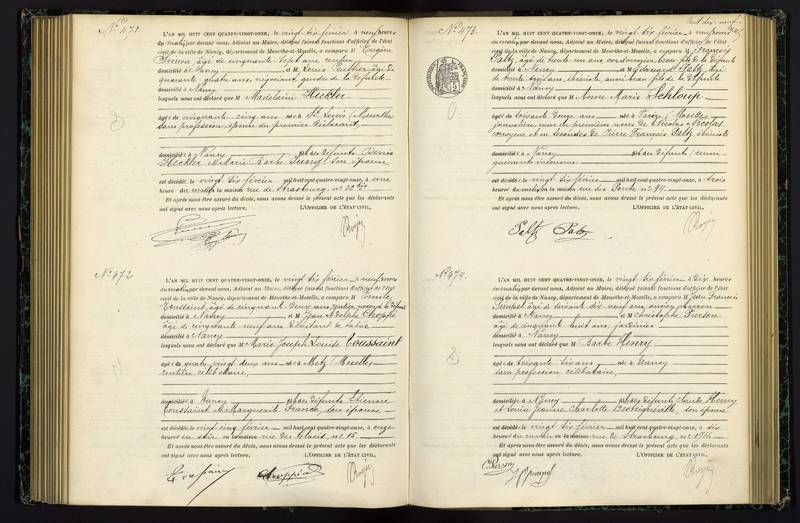 No 471.
L'AN MIL HUIT CENT QUATRE-VINGT-ONZE, le vingt six février à neuf heures
du matin par devant nous, Adjoint au Maire, délégué faisant fonctions d'officier de l'état
civil de la ville de Nancy, département de Meurthe-et-Moselle, a comparu M Eugène
Simon, âgé de cinquante sept ans, rentier
domicilié à Nancy et M Louis âgé de
quarante quatre ans, négociant, gendre de la défunte
domicilié à Nancy
lesquels nous ont déclaré que M Madelaine Hickler
âgé e de cinquante cinq ans né e à St Louis (Meurthe
sans profession, épouse du premier déclarant,
domicilié e à Nancy fille des défunts Denis
Hickler et Marie Barbe son épouse
est décédé e le vingt six février mil huit cent quatre-vingt-onze, à une
heure du matin en la maison rue de Strasbourg, no 22 bis
Et après nous être assuré du décès, nous avons dressé le présent acte que les déclarants
ont signé avec nous après lecture. L'OFFICIER DE L'ÉTAT CIVIL,
No 472
L'AN MIL HUIT CENT QUATRE-VINGT-ONZE, le vingt six février à neuf heures
du matin par devant nous, Adjoint au Maire, délégué faisant fonctions d'officier de l'état
civil de la ville de Nancy, département de Meurthe-et-Moselle, a comparu M Emile
Toussaint, âgé de cinquante deux ans, rentier, neveu de la défunte
domicilié à Nancy et M Jean Adolphe
âgé de cinquante neuf ans débitant de tabac
domicilié à Nancy
lesquels nous ont déclaré que M Marie Joseph Louise Toussaint
âgé e de quatre vingt deux ans née à Metz (Moselle)
rentière célibataire,
domicilié e à Nancy fille des défunts Etienne
Toussaint et Marguerite Franck, son épouse
est décédé e le vingt cinq février mil huit cent quatre-vingt-onze, à onze
heures du soir en la maison rue des no 15
Et après nous être assuré du décès, nous avons dressé le présent acte que les déclarants
ont signé avec nous après lecture. L'OFFICIER DE L'ÉTAT CIVIL,
Toussaint
No 473.
L'AN MIL HUIT CENT QUATRE-VINGT-ONZE, le vingt six février à neuf heures
du matin par devant nous, Adjoint au Maire, délégué faisant fonctions d'officier de l'état
civil de la ville de Nancy, département de Meurthe-et-Moselle, a comparu M François
Saltz, âgé de trente un ans, cordonnier, beau fils de la défunte
domicilié à Nancy et M Edouard Saltz, âgé
de trente trois ans, ébéniste, aussi beau fils de la défunte
domicilié à Nancy
lesquels nous ont déclaré que M Anne Marie Schloup
âgé e de soixante douze ans né e à (Moselle)
journalière, veuve en premières noces de Nicolas Nicolas,
corroyeur et en secondes de Pierre François Saltz, ébéniste
domicilié e à Nancy fille des défunts
est décédé e le vingt six février mil huit cent quatre-vingt-onze, à trois
heures du matin en la maison rue des Ponts no 94.
Et après nous être assuré du décès, nous avons dressé le présent acte que les déclarants
ont signé avec nous après lecture. L'OFFICIER DE L'ÉTAT CIVIL,
Saltz Saltz
No 474.
L'AN MIL HUIT CENT QUATRE-VINGT-ONZE, le vingt six février à dix heures
du matin par devant nous, Adjoint au Maire, délégué faisant fonctions d'officier de l'état
civil de la ville de Nancy, département de Meurthe-et-Moselle, a comparu M Jean François
âgé de soixante dix neuf ans, ancien
domicilié à Nancy et M Christophe Pierson
âgé de cinquante huit ans, jardinier
domicilié à Nancy
lesquels nous ont déclaré que M Barbe Henry
âgé e de soixante six ans née à Nancy
sans profession célibataire,
domicilié e à Nancy fille des défunts Claude Henry
et Louise Jeanne Charlotte son épouse
est décédé e le vingt six février mil huit cent quatre-vingt-onze, à six
heures du matin en la maison rue de Strasbourg no
Et après nous être assuré du décès, nous avons dressé le présent acte que les déclarants
ont signé avec nous après lecture. L'OFFICIER DE L'ÉTAT CIVIL,
C. Pierson